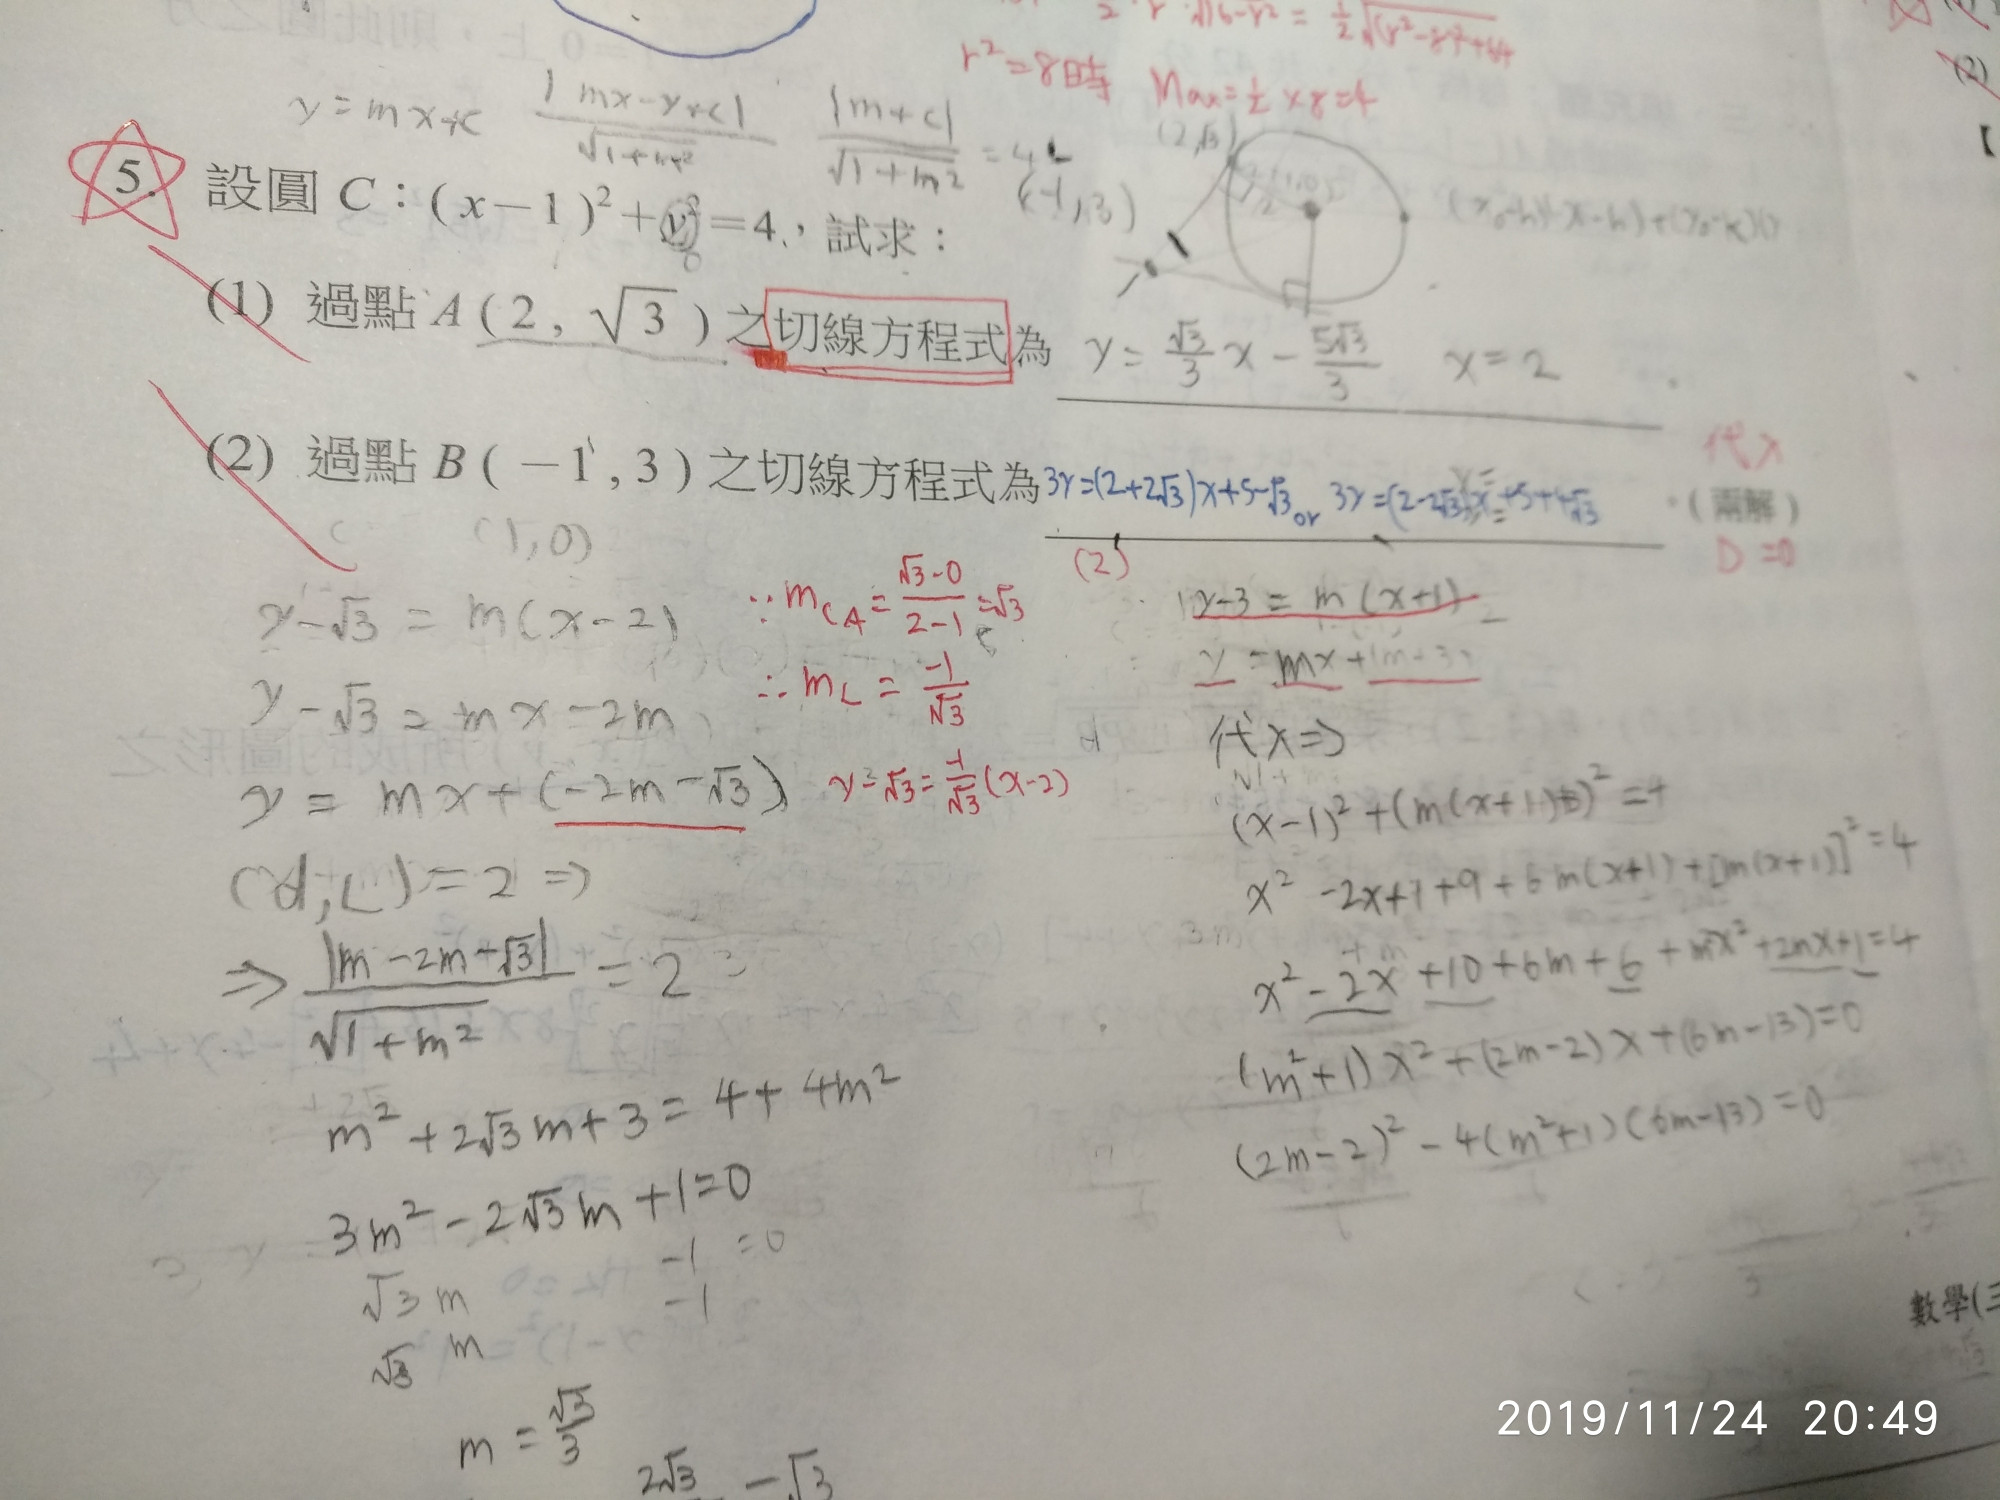 r²=8時 Max=½×8=4
y=mx+c |mx-y+c|/√(1+m²) |m+c|/√(1+m²) =4
(2,√3)
(-1,3)
5. 設圓 C：(x－1)²＋y²＝4，試求：
(1) 過點 A(2, √3)之切線方程式為 y=√3/3 x - 5√3/3 x=2
(2) 過點 B(－1, 3)之切線方程式為 3y=(2+2√3)x+5-√3 or 3y=(2-2√3)x+5+4√3 (兩解)
代入
D=0
(1,0)
y-√3=m(x-2)
y-√3=mx-2m
y=mx+(-2m-√3)
(d,L)=2⇒
⇒|m-2m+√3|/√(1+m²)=2
m²+2√3m+3=4+4m²
3m²-2√3m+1=0
√3m -1 =0
√3 m -1
m=√3/3
2√3 -√3
∵mCA=(√3-0)/(2-1)=√3
∴mL=-1/√3
y-√3=-1/√3(x-2)
(2)
y-3=m(x+1)
y=mx+(m+3)
代x⇒
(x-1)²+(m(x+1)+3)²=4
x²-2x+1+9+6m(x+1)+[m(x+1)]²=4
x²-2x+10+6m+6+m²x²+2mx+1=4
(m²+1)x²+(2m-2)x+(6m-13)=0
(2m-2)²-4(m²+1)(6m-13)=0
數學(三
2019/11/24 20:49